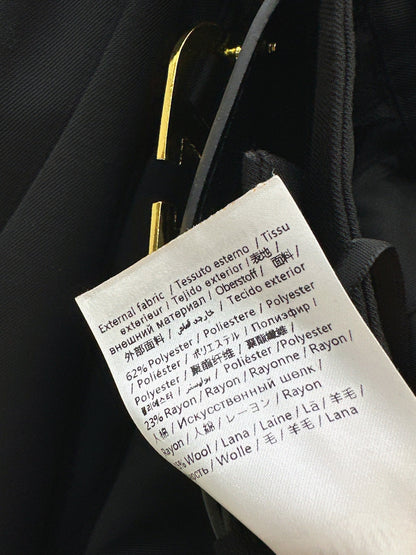 External fabric / Tessuto esterno / Tissu
extérieur / Tejido exterior / 表地 /
внешний материал / Oberstoff / 面料 /
外部面料 / Tecido exterior
62% Polyester / Poliestere / Polyester
/ Poliéster / ポリエステル / Полиэфир /
聚酯纤维 / Poliéster /Polyester
23% Rayon / Rayon / Rayonne / Rayon /
人棉 / Искусственный шелк /
Rayon / 人縀 / レーヨン / Rayon
5% Wool / Lana / Laine / Lã / 羊毛 /
рсть / Wolle / 毛 / 羊毛 / Lana